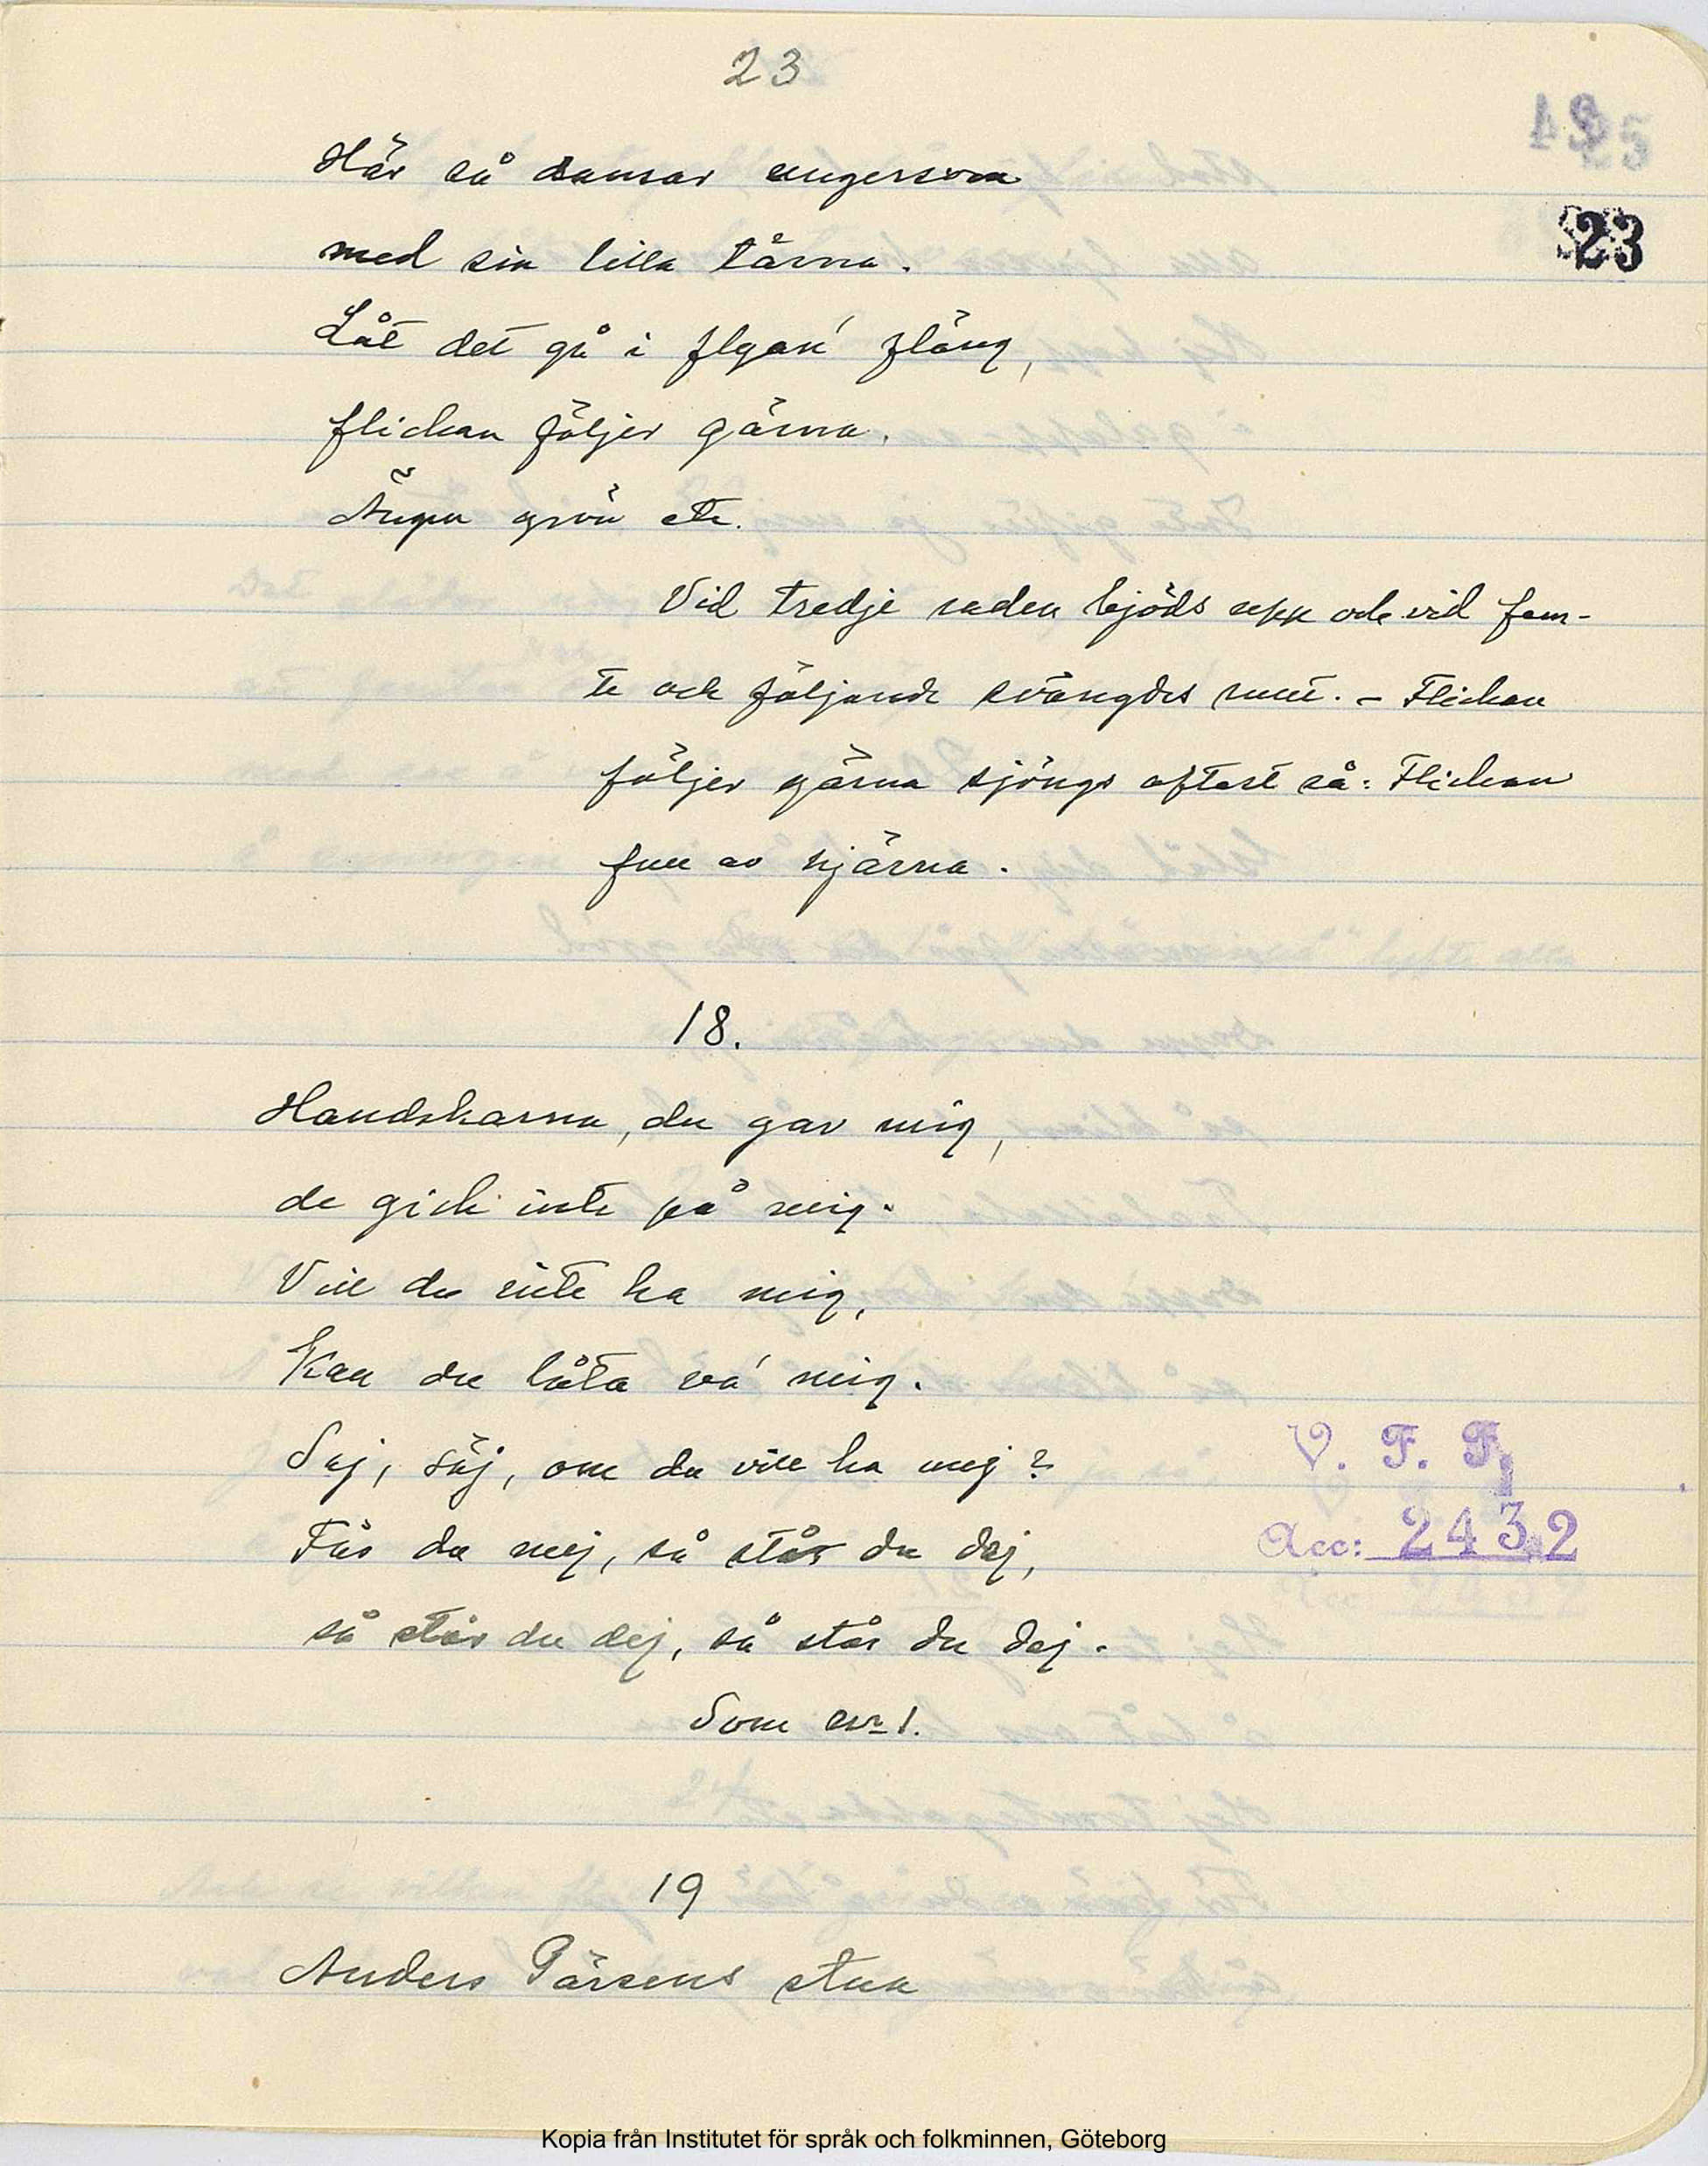 23
23
Här så dansar ungersven
med sin lilla tärna.
Låt det gå i flygan' fläng,
flickan följer gärna.
Ängen grön etc.
Vid tredje raden bjöds upp och vid fem-
te och följande svängdes runt. - Flickan
följer gärna sjöngs oftast så: Flickan
full av hjärna.
18.
Handskarna, du gav mig,
de gick inte på mig.
Vill du inte ha mig,
Kan du låta va' mig.
Säj, säj, om du vill ha mej?
Får du mej, så står du dej,
så står du dej, så står du dej.
Som nr 1.
V. F. F.
Acc: 2432
19
Anders Pärsens stua
Kopia från Institutet för språk och folkminnen, Göteborg